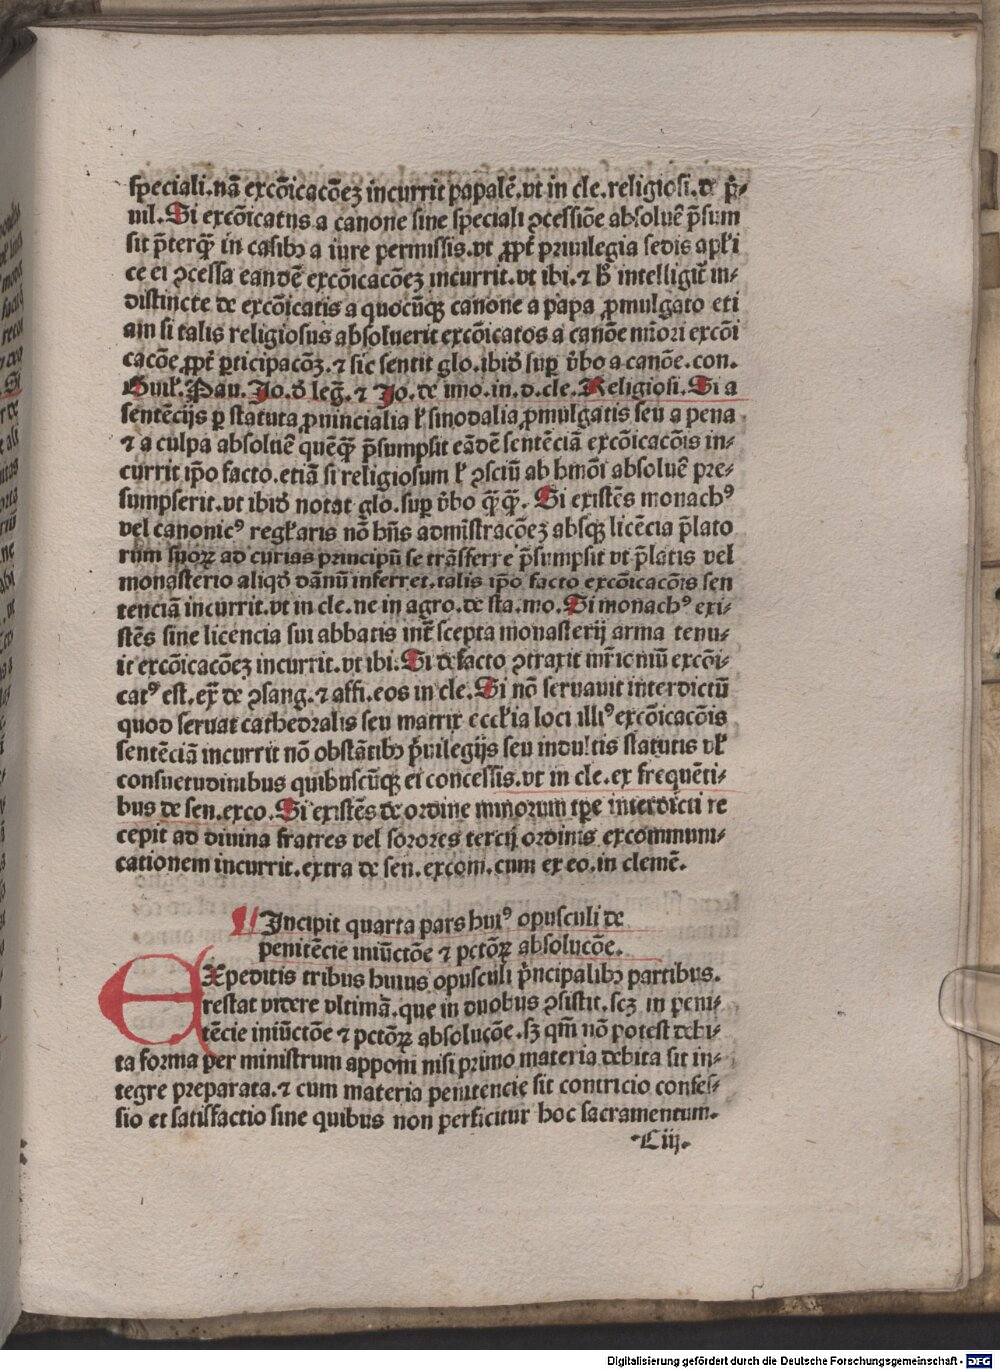 speciali.nā excōicacōeʒ incurrit papalē.vt in cle.religiosi.de p̄-
uil.Si excōicatus a canone sine speciali ꝯcessiōe absoluē p̄sum
sit p̄terqꝫ̄ in casibꝫ a iure permissis.vt ꝓpt̄ priuilegia sedis apl̄i
ce ei ꝯcessa eandē excōicacōeʒ incurrit.vt ibi.⁊ h̄ intelligit̄ in-
distincte de excōicatis a quocūqꝫ canone a papa ꝓmulgato eti
am si talis religiosus absoluerit excōicatos a canōe mīori excōi
cacōe ꝓpt̄ ꝑticipacōʒ.⁊ sic sentit glo.ibid̄ sup̄ v̄bo a canōe.con.
Guil̄.Pau.Jo.d̄ leḡ.⁊ Jo.de imo.in.d.cle.Religiosi.Si a
sentēcijs ꝑ statuta ꝓuincialia l̄ sinodalia ꝓmulgatis seu a pena
⁊ a culpa absoluē quēqꝫ̄ p̄sumpsit eādē sentēciā excōicacōis in-
currit ip̄o facto.etiā si religiosum l̄ ꝯsciū ab hmōi absoluē pre-
sumpserit.vt ibid̄ notat glo.sup̄ v̄bo q̄ꝫ q̄ꝫ. Si existēs monachꝰ
vel canonicꝰ regl̄aris nō hn̄s admīstracōeʒ absqꝫ licēcia p̄lato
rum suoꝝ ad curias principū se trāsferre p̄sumpsit vt p̄latis vel
monasterio aliqd̄ dānū inferret.talis ip̄o facto excōicacōis sen
tenciā incurrit.vt in cle.ne in agro.de sta.mo.Si monachꝰ exi-
stēs sine licencia sui abbatis int̄ scepta monasterij arma tenu-
it excōicacōeʒ incurrit.vt ibi.Si de facto ꝯtraxit mr̄īoniū excōi-
catꝰ est.ex̄ de ꝯsang.⁊ affi.eos in cle.Si nō seruauit interdictū
quod seruat cathedralis seu matrix eccl̄ia loci illiꝰ excōicacōis
sentēciā incurrit nō obstātibꝫ p̄uilegijs seu indultis statutis vl̄
consuetudinibus quibuscūqꝫ ei concessis.vt in cle.ex frequēti-
bus de sen.exco.Si existēs de ordine minorum tꝑe interdicti re
cepit ad diuina fratres vel sorores tercij ordinis excommuni-
cationem incurrit.extra de sen.excom.cum ex eo.in clemē.
¶ Incipit quarta pars huiꝰ opusculi de
penitēcie iniūctōe ⁊ pctōꝝ absolucōe.
EXpeditis tribus huius opusculi p̄ncipalibꝫ partibus.
restat videre vltimā.que in duobus ꝯsistit.scꝫ in peni-
tēcie iniūctōe ⁊ pctōꝝ absolucōe.sꝫ qm̄ nō potest debi-
ta forma per ministrum apponi nisi primo materia debita sit in-
tegre preparata.⁊ cum materia penitencie sit contricio confes-
sio et satisfactio sine quibus non perficitur hoc sacramentum.
Ciij.
Digitalisierung gefördert durch die Deutsche Forschungsgemeinschaft - DFG